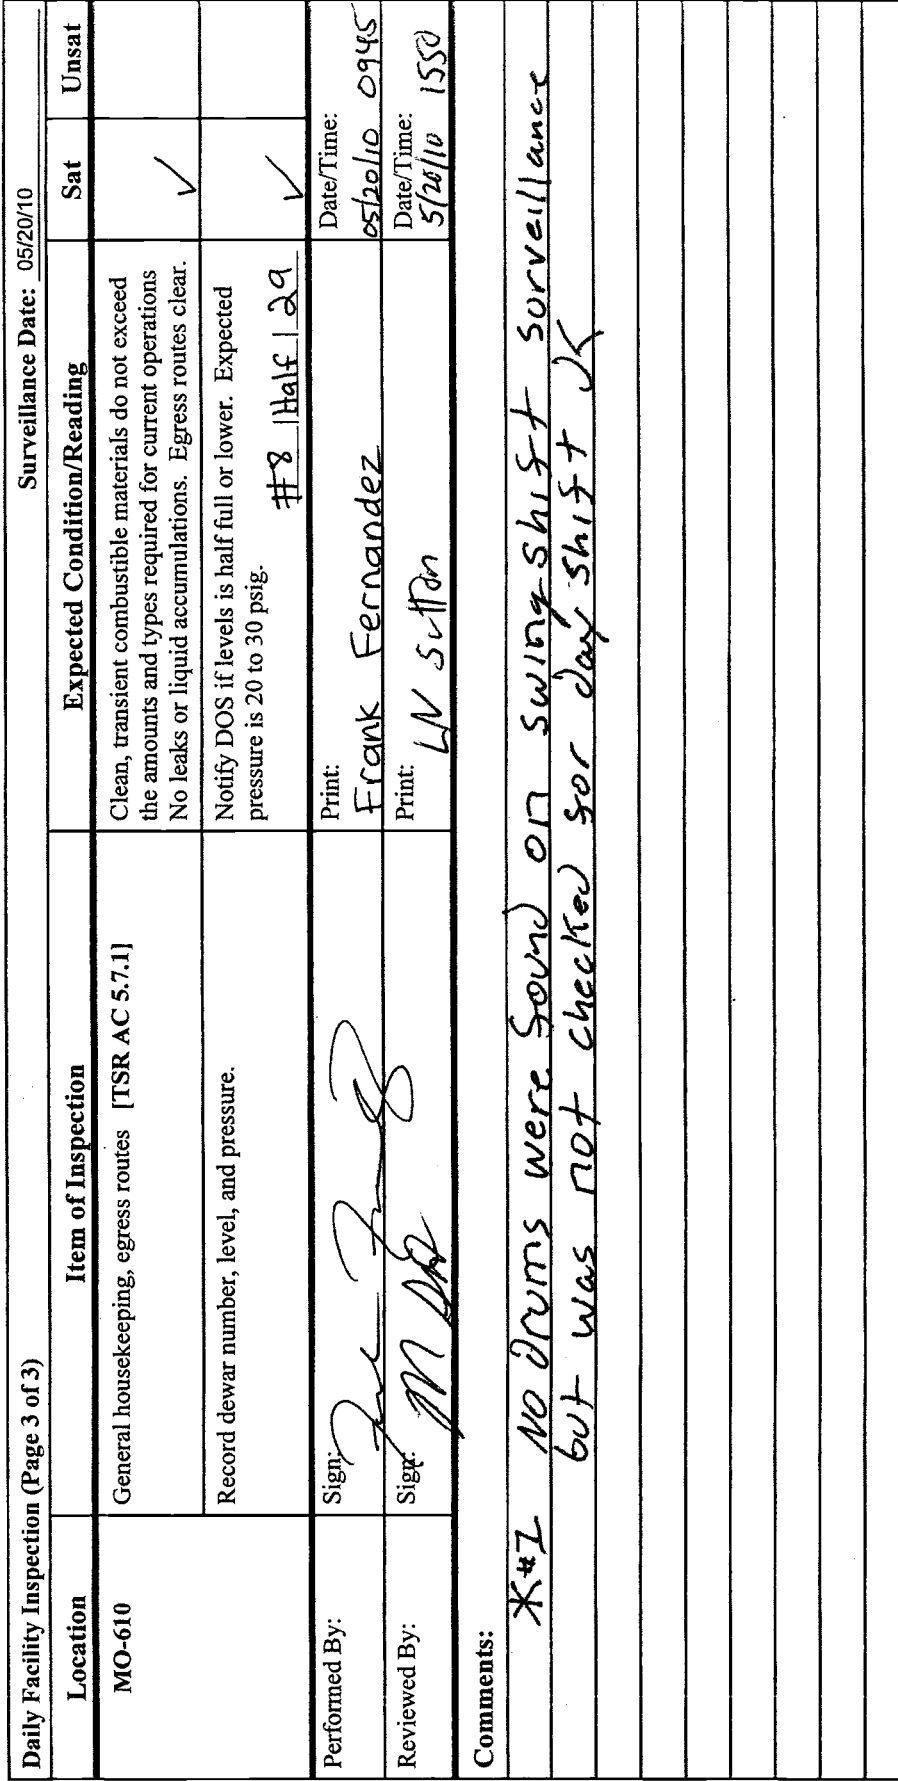 Daily Facility Inspection (Page 3 of 3) Surveillance Date: 05/20/10
Location Item of Inspection Expected Condition/Reading Sat Unsat
MO-610 General housekeeping, egress routes [TSR AC 5.7.1] Clean, transient combustible materials do not exceed
the amounts and types required for current operations
No leaks or liquid accumulations. Egress routes clear. ✓
Record dewar number, level, and pressure. Notify DOS if levels is half full or lower. Expected
pressure is 20 to 30 psig.
#8 | Half | 29 ✓
Performed By: Sign: Print: Date/Time:
Frank Fernandez 05/20/10 0945
Reviewed By: Sign: Print: Date/Time:
Sutton 5/20/10 1550
Comments:
*#1 No drums were found on swing shift surveillance
but was not checked for day shift JK